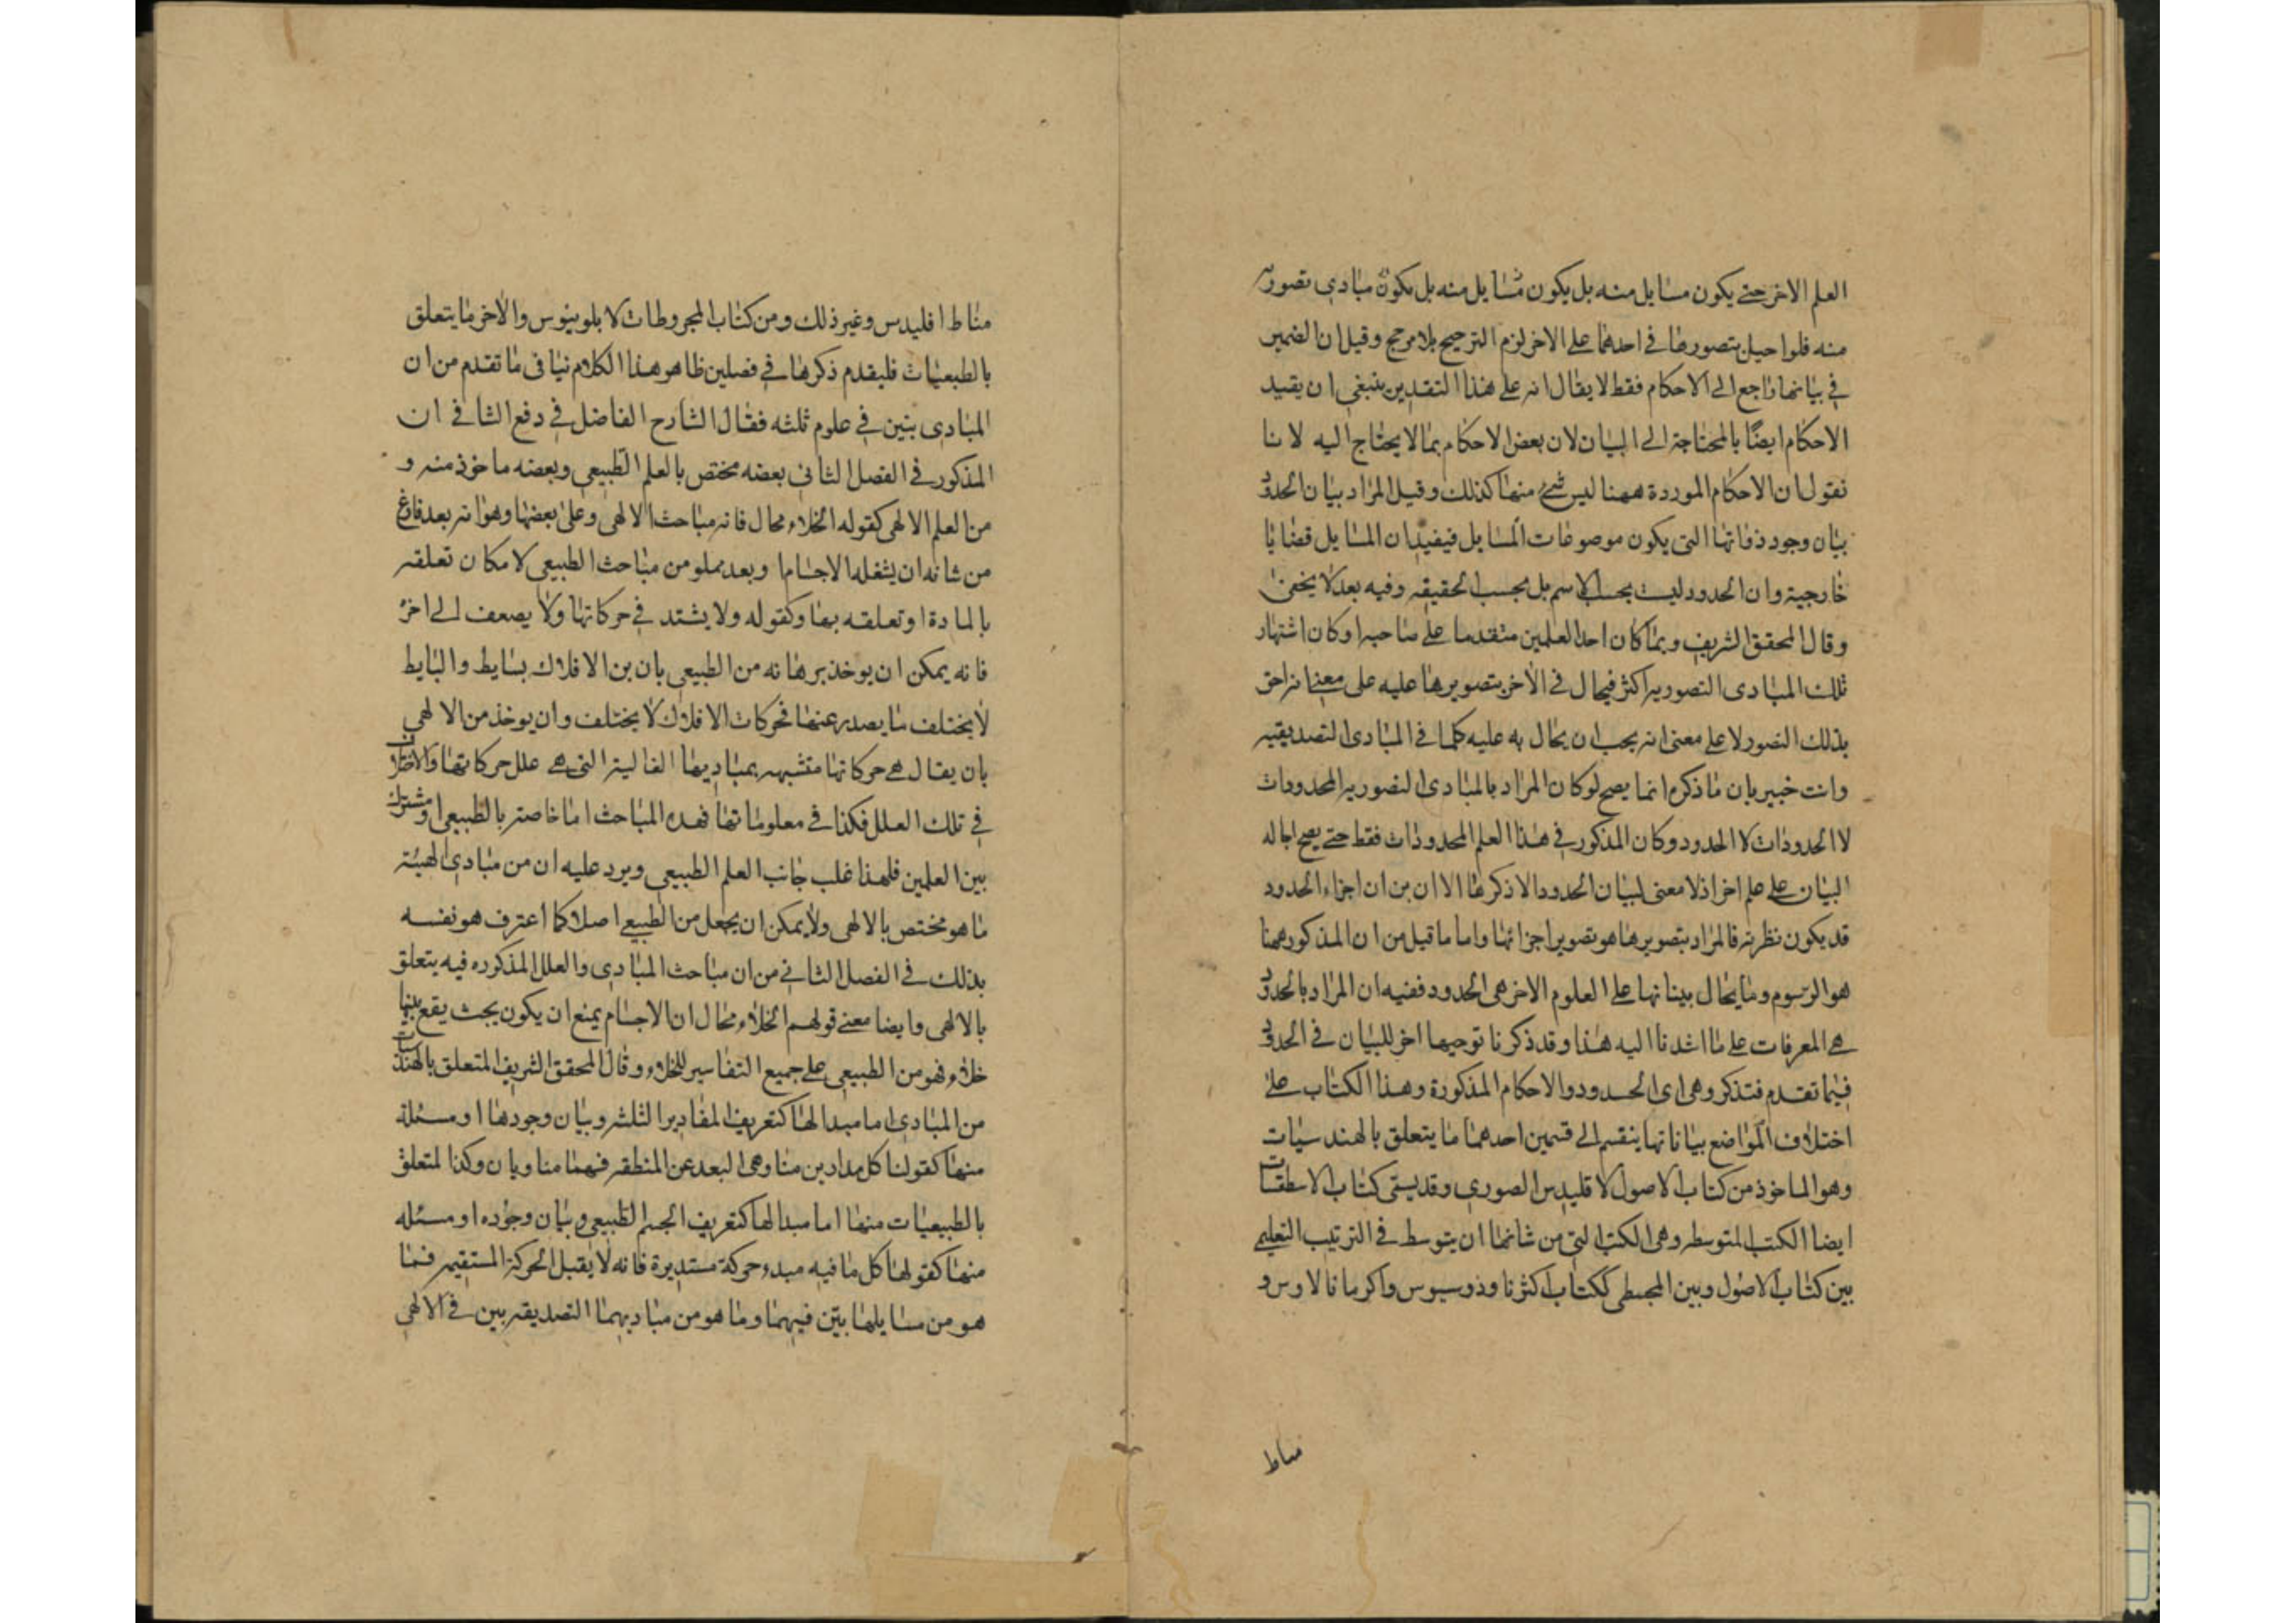 العلم الاخر حتے يكون مسايل منه بل يكون مسايل منه بل يكون مبادى تصوريه
منه فلو احيل بتصورها فى احدهما على الاخر لزم الترجيح بلا مرجح وقيل ان الضمير
فى بيانها راجع الى الاحكام فقط لا يقال انه على هذا التقدير ينبغى ان يقيد
الاحكام ايضا بالمحتاجة الى البيان لان بعض الاحكام بما لا يحتاج اليه لانا
نقول ان الاحكام الموردة ههنا ليس شئ منها كذلك وقيل المراد ببيان الحدود
بيان وجود ذواتها التى يكون موصوعات المسايل فيفيد ان المسايل قضايا
خارجية وان الحدود ليست بحسب الاسم بل بحسب الحقيقه وفيه بعد لا يخفى
وقال المحقق الشريف وبما كان احد العلمين متقدما على صاحبه او كان اشتهار
تلك المبادى التصوريه اكثر فيحال فى الاخر بتصويرها عليه على معنى انه احق
بذلك التصور لا على معنى انه يجب ان يحال به عليه كما فى المبادى التصديقيه
وانت خبير بان ما ذكره انما يصح لو كان المراد بالمبادى التصوريه المحدودات
لا الحدودات لا الحدود وكان المذكور فى هذا العلم المحدودات فقط حتے يصح احاله
البيان على علم اخر اذ لا معنى لبيان الحدود الا ذكرها الا ان بن ان اجزاء الحدود
قد يكون نظريه فالمراد بتصويرها هو تصوير اجزائها واما ما قيل من ان المذكور ههنا
هو الرسوم وما يحال ببيناتها على العلوم الاخر هى الحدود ففيه ان المراد بالحدود
هے المعرفات على ما اشدنا اليه هذا وقد ذكرنا توجيها اخر للبيان فى الحدود
فيما تقدم فتذكر وهى اى الحدود والاحكام المذكورة وهذا الكتاب على
اختلاف المواضع بياناتها ينقسم الى قسمين احدهما ما يتعلق بالهندسيات
وهو الماخوذ من كتاب الاصول لاقليدس الصورى وقد يسمى كتاب الاسطقسات
ايضا الكتب المتوسطه وهى الكتب التى من شانها ان يتوسط فى الترتيب التعليم
بين كتاب الاصول وبين المجسطى ككتاب اكثر ثاوذوسيوس واكر مانالاوس و
مناط
مناط اقليدس وغير ذلك ومن كتاب المخروطات لابلونيوس والاخر ما يتعلق
بالطبعيات فليقدم ذكرها فى فصلين ظاهر هذا الكلام ينافى ما تقدم من ان
المبادى يتبين فى علوم ثلثه فقال الشارح الفاضل فى دفع التنافى ان
المذكور فى الفصل الثانى بعضه مختص بالعلم الطبيعى وبعضه ماخوذ منه و
من العلم الالهى كقوله الخلاء محال فانه مباحث الالهى وعلى بعضها وهو انه بعد فارغ
من شانه ان يشغله الاجسام وبعد مملو من مباحث الطبيعى لا مكان تعلقه
بالمادة او تعلقه بها وكقوله ولا يشتد فى حركاتها ولا يصعف الى اخره
فانه يمكن ان يوخذ برهانه من الطبيعى بان بن الافلاك بسايط والبايط
لا يختلف ما يصدر عنها فحركات الافلاك لا يختلف وان يوخذ من الالهى
بان يقال هے حركاتها متشبهه بمباديها الغاليته التى هے علل حركاتها والاختلاف
فى تلك العلل فكذا فى معلوماتها فهذه المباحث اما خاصه بالطبيعى او مشترك
بين العلمين فلهذا غلب جانب العلم الطبيعى ويرد عليه ان من مبادى الهيئة
ما هو مختص بالالهى ولا يمكن ان يجعل من الطبيعے اصلا كما اعترف هو نفسه
بذلك فى الفصل الثانى من ان مباحث المبادى والعلل المذكوره فيه يتعلق
بالالهى وايضا معنے قولهم الخلاء محال ان الاجسام يمنع ان يكون بحيث يقع بينها
خلاء فهو من الطبيعى على جميع التفاسير للخلاء وقال المحقق الشريف المتعلق بالهندسيات
من المبادى اما مبدا لها كتعريف المقادير الثلثه وبيان وجودها او مسئلة
منها كقولنا كل مدار بن منا وهى البعد عن المنطقه فهما مناويان وكذا المتعلق
بالطبيعيات منها اما مبدا لها كتعريف الجسم الطبيعى وبيان وجوده او مسئله
منها كقولها كل ما فيه مبدء حركة مستديرة فانه لا يقبل الحركة المستقيمه فما
هو من مسايلها بين فيهما وما هو من مباديهما التصديقيه بين فى الالهى